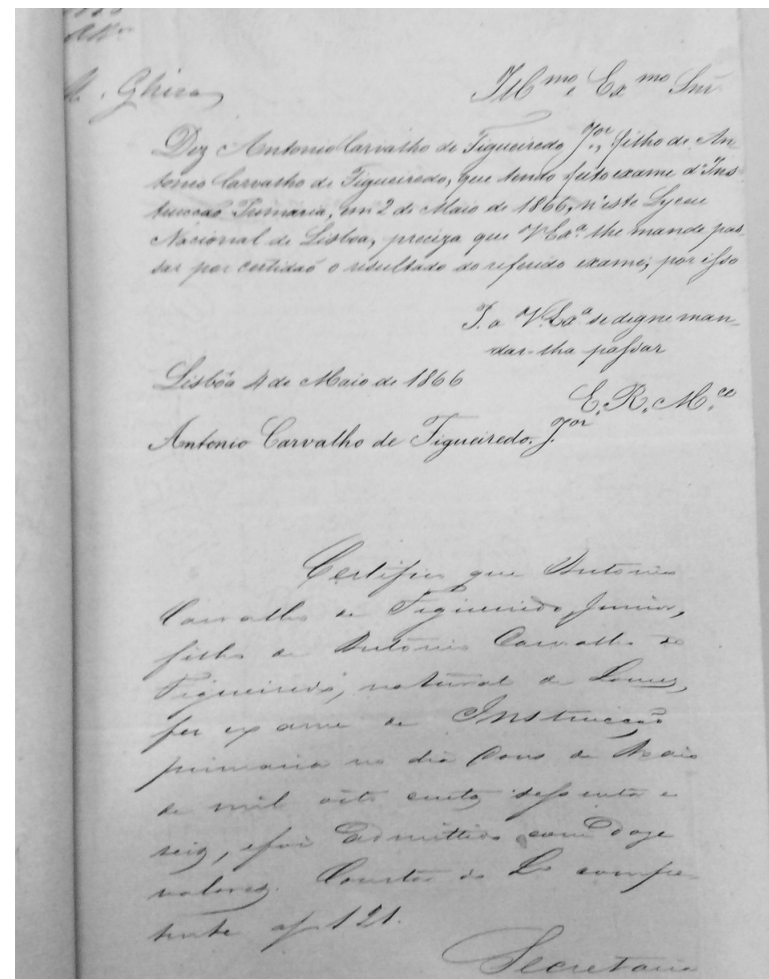 M. Ghira
Ill.mo, Ex.mo Snr
Diz Antonio Carvalho de Figueiredo J.or, filho de An-
tonio Carvalho de Figueiredo, que tendo feito exame d'Ins-
trucção Primaria, em 2 de Maio de 1866, n'este Lyceu
Nacional de Lisboa, preciza que V.Ex.a lhe mande pas-
sar por certidaõ o resultado do referido exame; por isso
P. a V.Ex.a se digne man-
dar-lha passar
Lisbôa 4 de Maio de 1866
E. R. M.ce
Antonio Carvalho de Figueiredo. J.or
Certifico que Antonio
Carvalho de Figueiredo Junior,
filho de Antonio Carvalho de
Figueiredo, natural de
fez exame de Instrucção
primaria no dia dous de Maio
de mil oito centos sessenta e
seis, e foi Admittido com Doze
valores. Consta do Lo compe-
tente af 121.
Secretaria